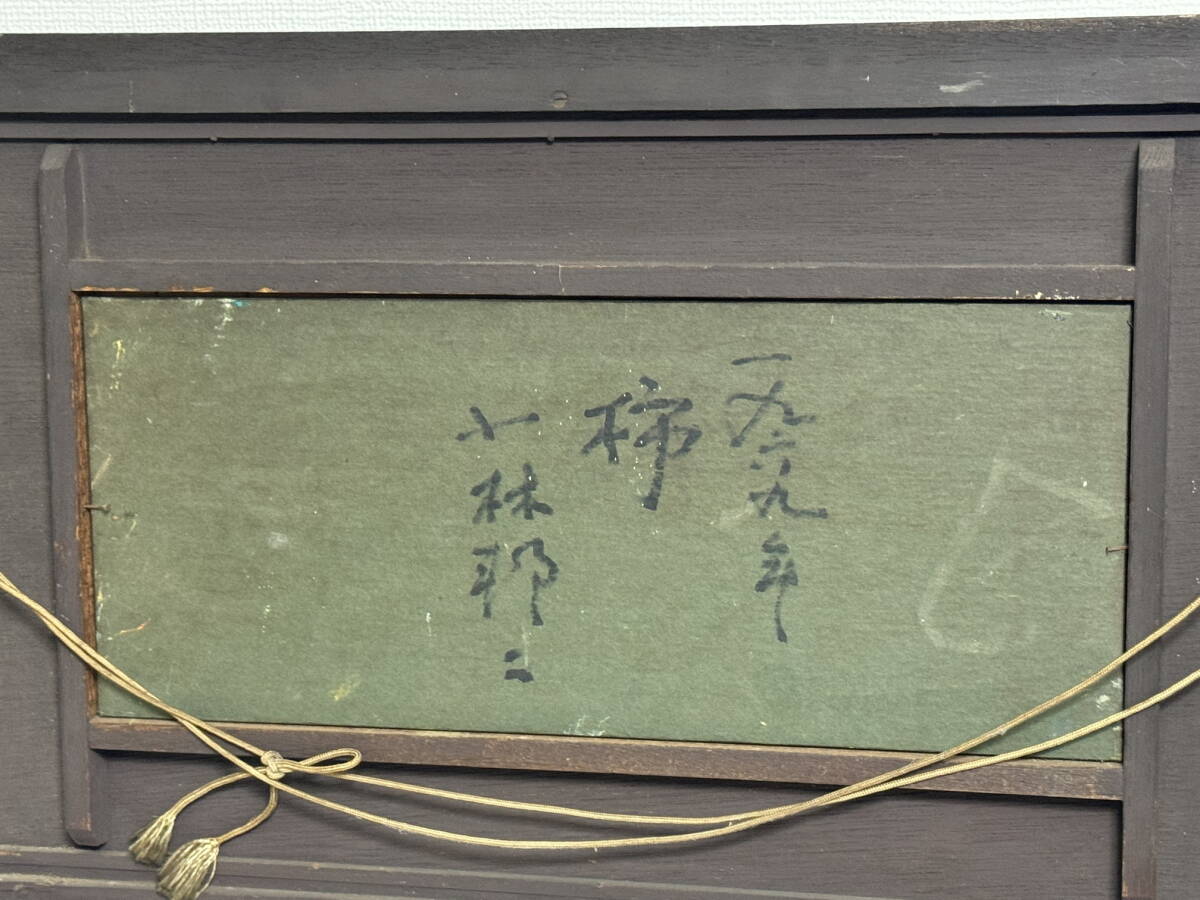 一九六九年
柿
小林邦二